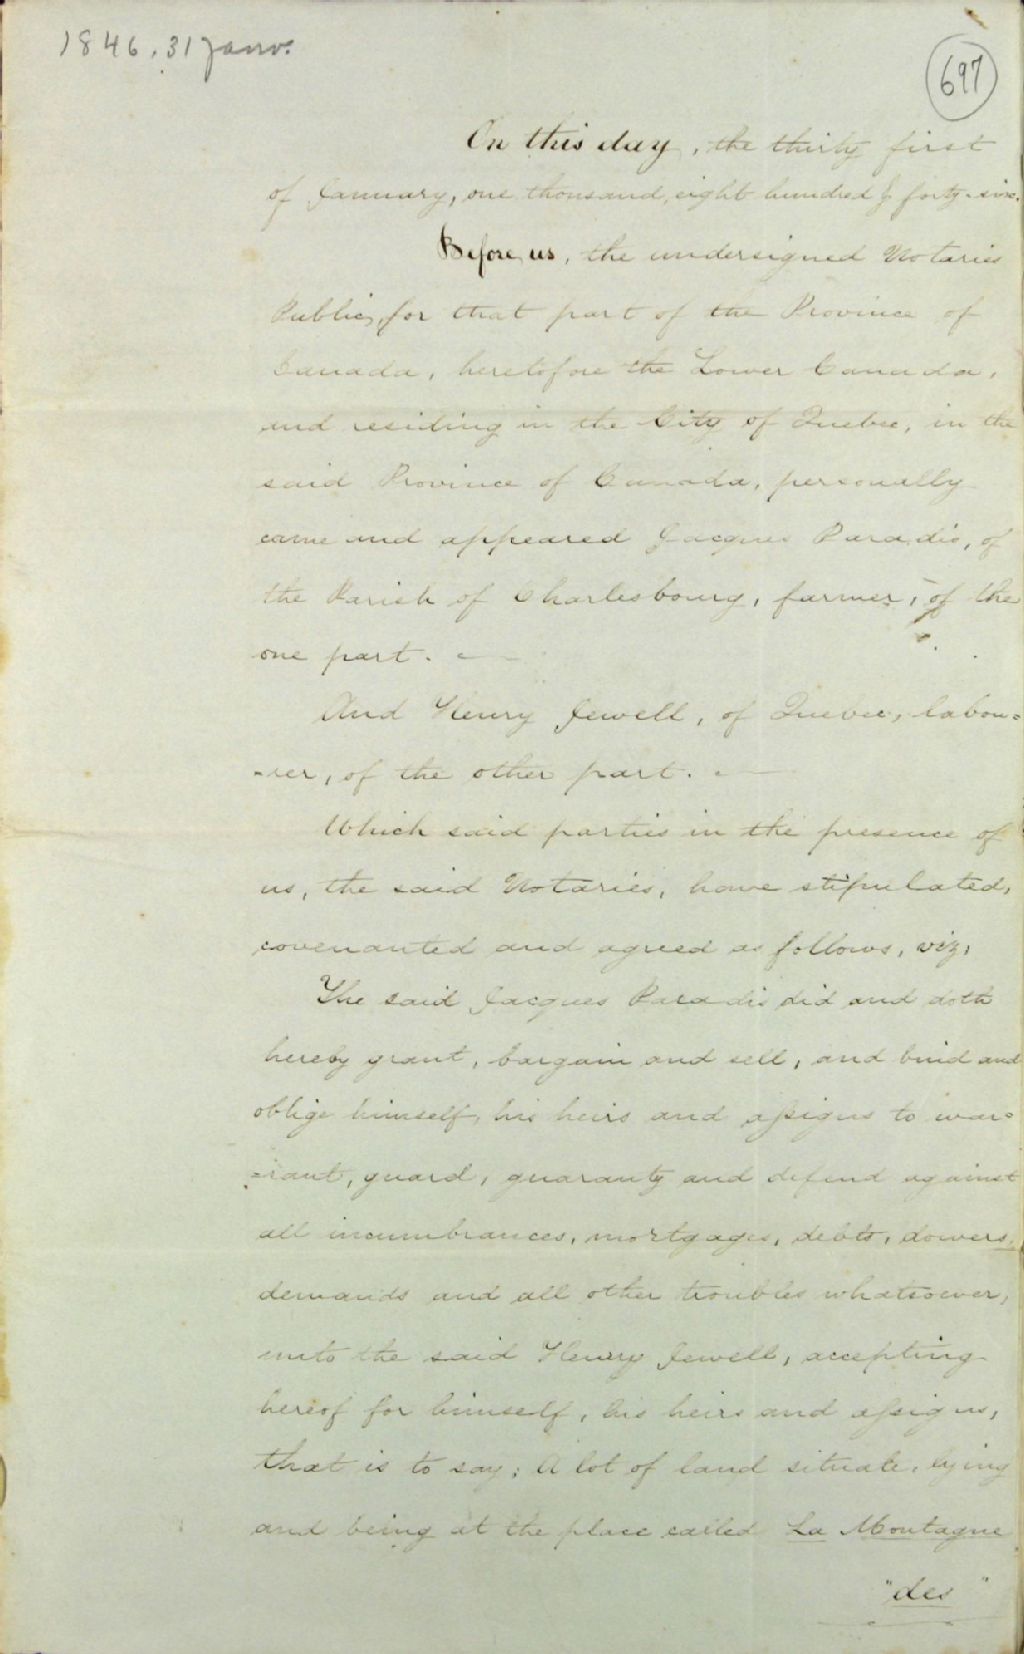 1846. 31 Janv.
697
On this day, the thirty first
of January, one thousand, eight hundred & forty-six.
Before us, the undersigned Notaries
Public, for that part of the Province of
Canada, heretofore the Lower Canada,
and residing in the City of Quebec, in the
said Province of Canada, personally
came and appeared Jacques Paradis, of
the Parish of Charlesbourg, farmer, of the
one part.
And Henry Jewell, of Quebec, labou=
=rer, of the other part.
Which said parties in the presence of
us, the said Notaries, have stipulated,
covenanted and agreed as follows, viz:
The said Jacques Paradis did and doth
hereby grant, bargain and sell, and bind and
oblige himself, his heirs and assigns to war=
=rant, guard, guaranty and defend against
all incumbrances, mortgages, debts, dowers,
demands and all other troubles whatsoever,
unto the said Henry Jewell, accepting
hereof for himself, his heirs and assigns,
that is to say; A lot of land situate, lying
and being at the place called La Montagne
"des"